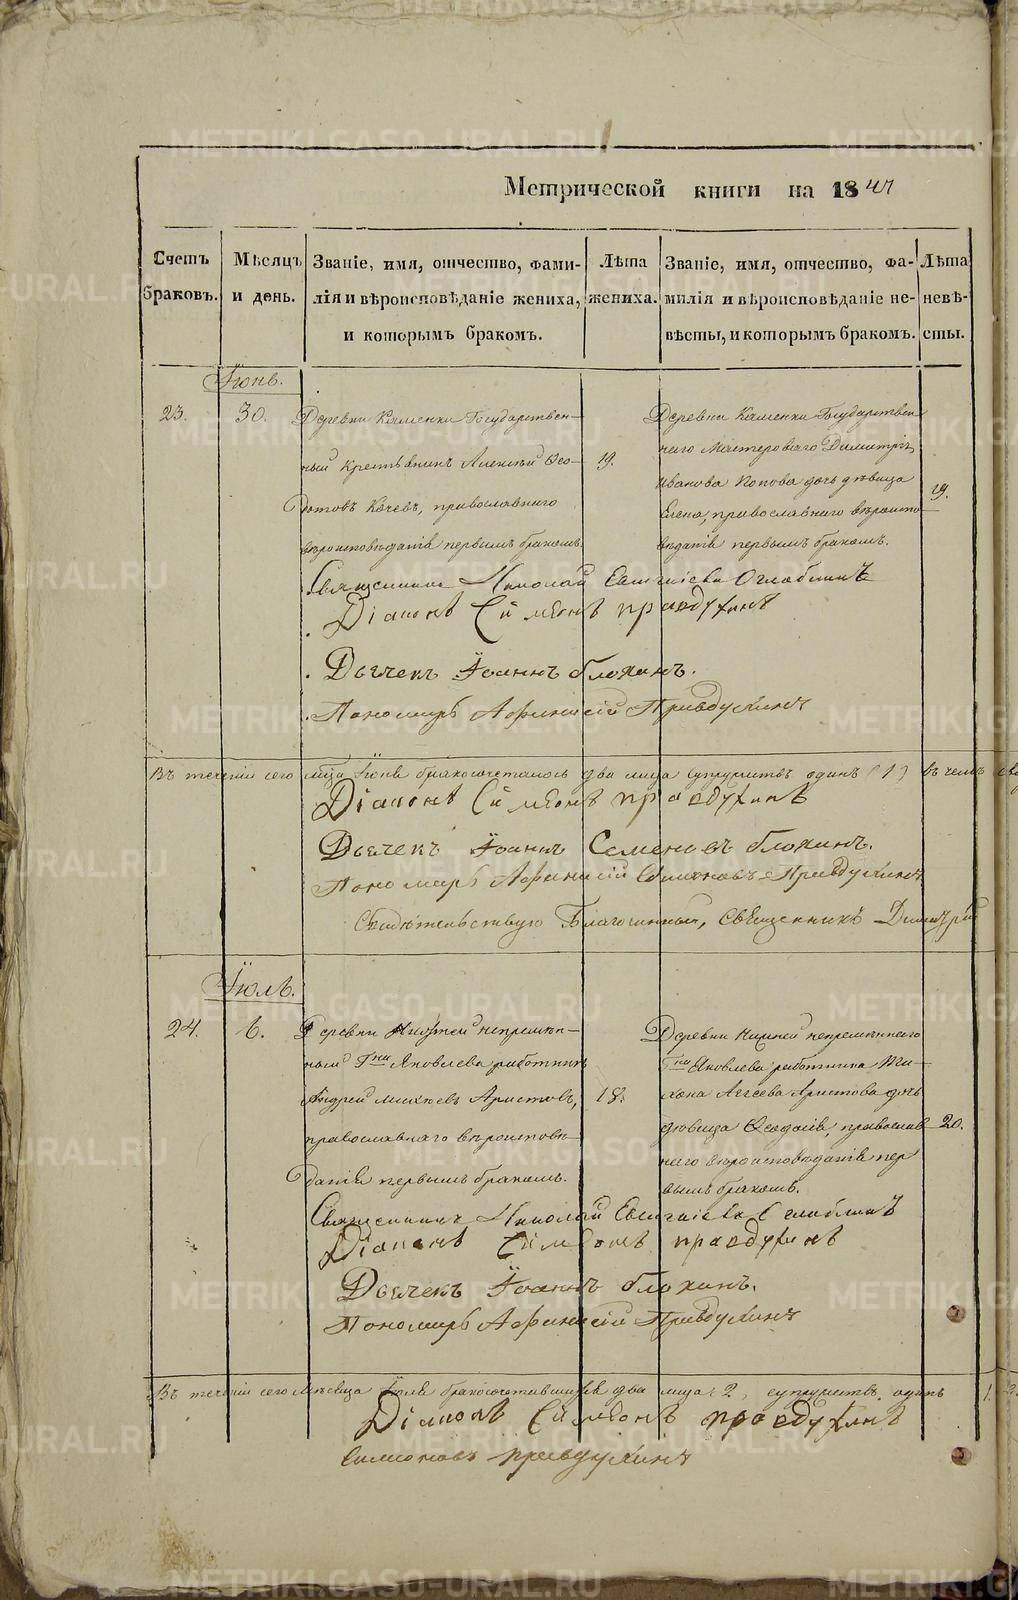 Метрической книги на 1847
Счетъ браковъ.
Мѣсяцъ и день.
Званіе, имя, отчество, фами-
лія и вѣроисповѣданіе жениха,
и которымъ бракомъ.
Лѣта жениха.
Званіе, имя, отчество, фа-
милія и вѣроисповѣданіе не-
вѣсты, и которымъ бракомъ.
Лѣта невѣ-
сты.
Іюнь.
23.
30.
Деревни Каменки Государствен-
ный крестьянинъ Алексѣй Ѳео-
дотовъ Качевъ, православнаго
вѣроисповѣданія первымъ бракомъ.
19.
Деревни Каменки Государствен
наго Мастероваго Димитрія
Иванова Попова дочь дѣвица
Елена, православнаго вѣроиспо-
вѣданія первымъ бракомъ.
19.
Священникъ Николай Евгеніевъ Оглоблинъ
Діаконъ Симеонъ Правдухинъ
Дьячекъ Іоаннъ Блохинъ.
Пономарь Афанасій Правдухинъ
Въ теченіи сего мѣсяца Іюня бракосочеталось два лица супружествъ одинъ (1) въ чемъ
Діаконъ Симеонъ Правдухинъ
Дьячекъ Іоаннъ Семеновъ Блохинъ.
Пономарь Афанасій Симеоновъ Правдухинъ
Свидѣтельствую Благочинный, Священникъ Димитрій
Іюль.
24.
6.
Деревни Нижней непремѣн-
ный Гна Яковлева работникъ
Андрей Михѣевъ Аристовъ,
православнаго вѣроисповѣ-
данія первымъ бракомъ.
18.
Деревни Нижней непремѣннаго
Гна Яковлева работника Ти-
хона Агѣева Аристова дочь
дѣвица Ѳеодосія, православ-
наго вѣроисповѣданія пер
вымъ бракомъ.
20.
Священникъ Николай Евгеніевъ Оглоблинъ
Діаконъ Симеонъ Правдухинъ
Дьячекъ Іоаннъ Блохинъ.
Пономарь Афанасій Правдухинъ
Въ теченіи сего мѣсяца Іюля бракосочетавшихся два лица 2, супружествъ одинъ 1.
Діаконъ Симеонъ Правдухинъ
Симеоновъ Правдухинъ
METRIKI.GASO-URAL.RU